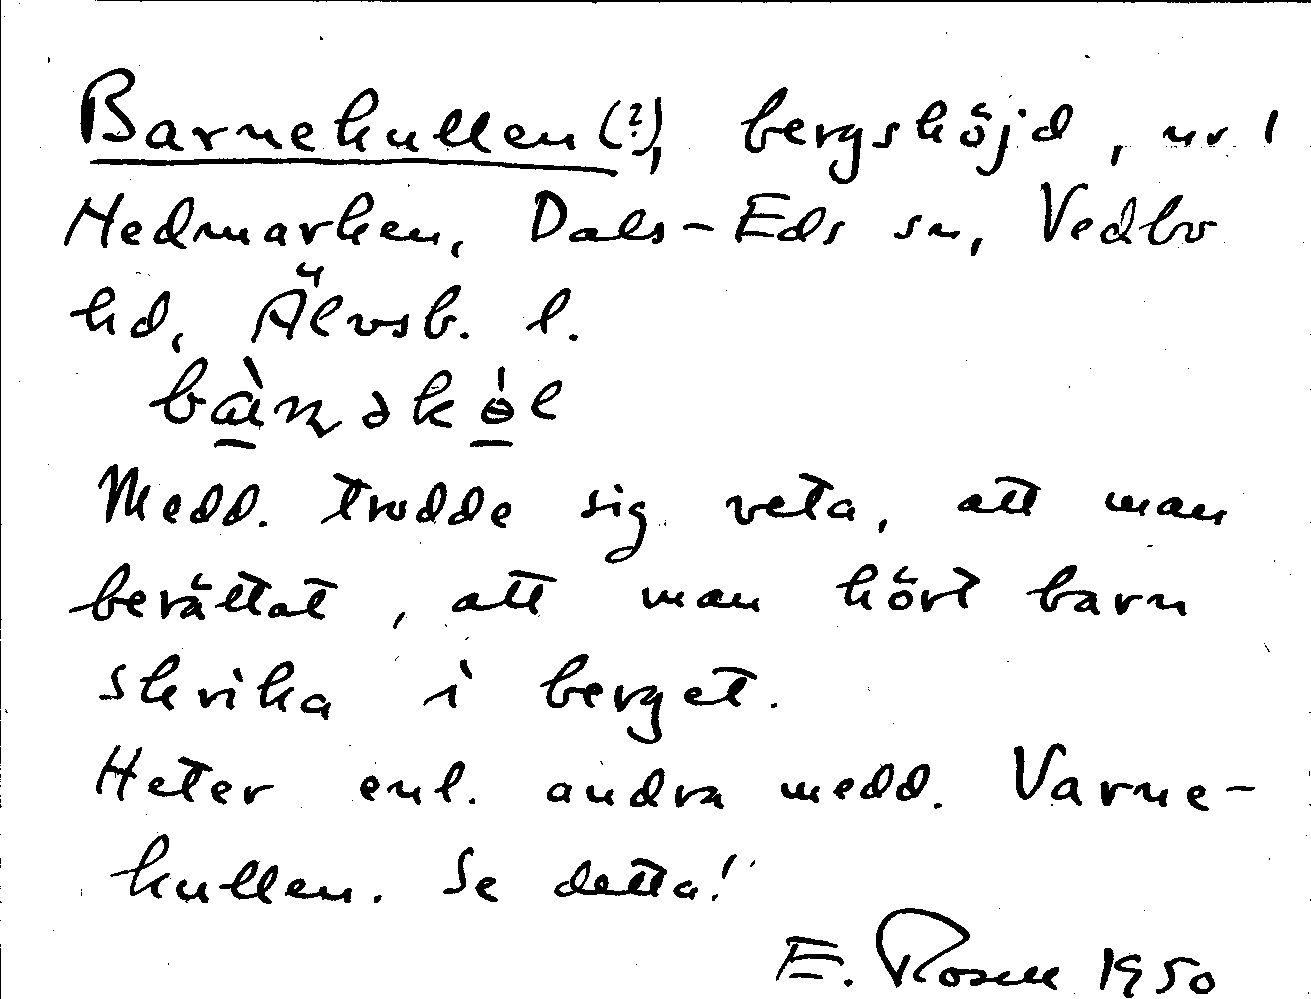 Barnekullen (?), bergshöjd, nr 1
Hedmarken, Dals-Eds sn, Vedbo
hd, Älvsb. l.
Medd. trodde sig veta, att man
berättat, att man hört barn
skrika i berget.
Heter enl. andra medd. Varne-
kullen. Se detta!
E. Rosell 1950